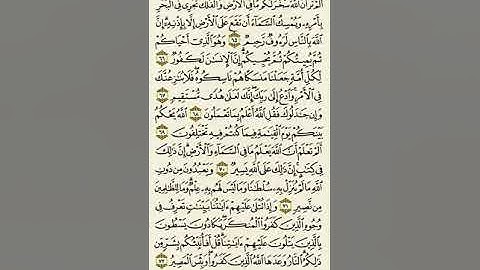 أَلَمْ تَرَ أَنَّ ٱللَّهَ سَخَّرَ لَكُم مَّا فِي ٱلْأَرْضِ وَٱلْفُلْكَ تَجْرِي فِي ٱلْبَحْرِ
بِأَمْرِهِۦ وَيُمْسِكُ ٱلسَّمَآءَ أَن تَقَعَ عَلَى ٱلْأَرْضِ إِلَّا بِإِذْنِهِۦٓ إِنَّ
ٱللَّهَ بِٱلنَّاسِ لَرَءُوفٌ رَّحِيمٌ ٦٥ وَهُوَ ٱلَّذِيٓ أَحْيَاكُمْ
ثُمَّ يُمِيتُكُمْ ثُمَّ يُحْيِيكُمْ إِنَّ ٱلْإِنسَٰنَ لَكَفُورٌ ٦٦
لِّكُلِّ أُمَّةٍ جَعَلْنَا مَنسَكًا هُمْ نَاسِكُوهُ فَلَا يُنَٰزِعُنَّكَ
فِي ٱلْأَمْرِ وَٱدْعُ إِلَىٰ رَبِّكَ إِنَّكَ لَعَلَىٰ هُدًى مُّسْتَقِيمٍ ٦٧
وَإِن جَٰدَلُوكَ فَقُلِ ٱللَّهُ أَعْلَمُ بِمَا تَعْمَلُونَ ٦٨ ٱللَّهُ يَحْكُمُ
بَيْنَكُمْ يَوْمَ ٱلْقِيَٰمَةِ فِيمَا كُنتُمْ فِيهِ تَخْتَلِفُونَ ٦٩
أَلَمْ تَعْلَمْ أَنَّ ٱللَّهَ يَعْلَمُ مَا فِي ٱلسَّمَآءِ وَٱلْأَرْضِ إِنَّ ذَٰلِكَ
فِي كِتَٰبٍ إِنَّ ذَٰلِكَ عَلَى ٱللَّهِ يَسِيرٌ ٧٠ وَيَعْبُدُونَ مِن دُونِ
ٱللَّهِ مَا لَمْ يُنَزِّلْ بِهِۦ سُلْطَٰنًا وَمَا لَيْسَ لَهُم بِهِۦ عِلْمٌ وَمَا لِلظَّٰلِمِينَ
مِن نَّصِيرٍ ٧١ وَإِذَا تُتْلَىٰ عَلَيْهِمْ ءَايَٰتُنَا بَيِّنَٰتٍ تَعْرِفُ فِي
وُجُوهِ ٱلَّذِينَ كَفَرُوا۟ ٱلْمُنكَرَ يَكَادُونَ يَسْطُونَ
بِٱلَّذِينَ يَتْلُونَ عَلَيْهِمْ ءَايَٰتِنَا قُلْ أَفَأُنَبِّئُكُم بِشَرٍّ مِّن
ذَٰلِكُمُ ٱلنَّارُ وَعَدَهَا ٱللَّهُ ٱلَّذِينَ كَفَرُوا۟ وَبِئْسَ ٱلْمَصِيرُ ٧٢